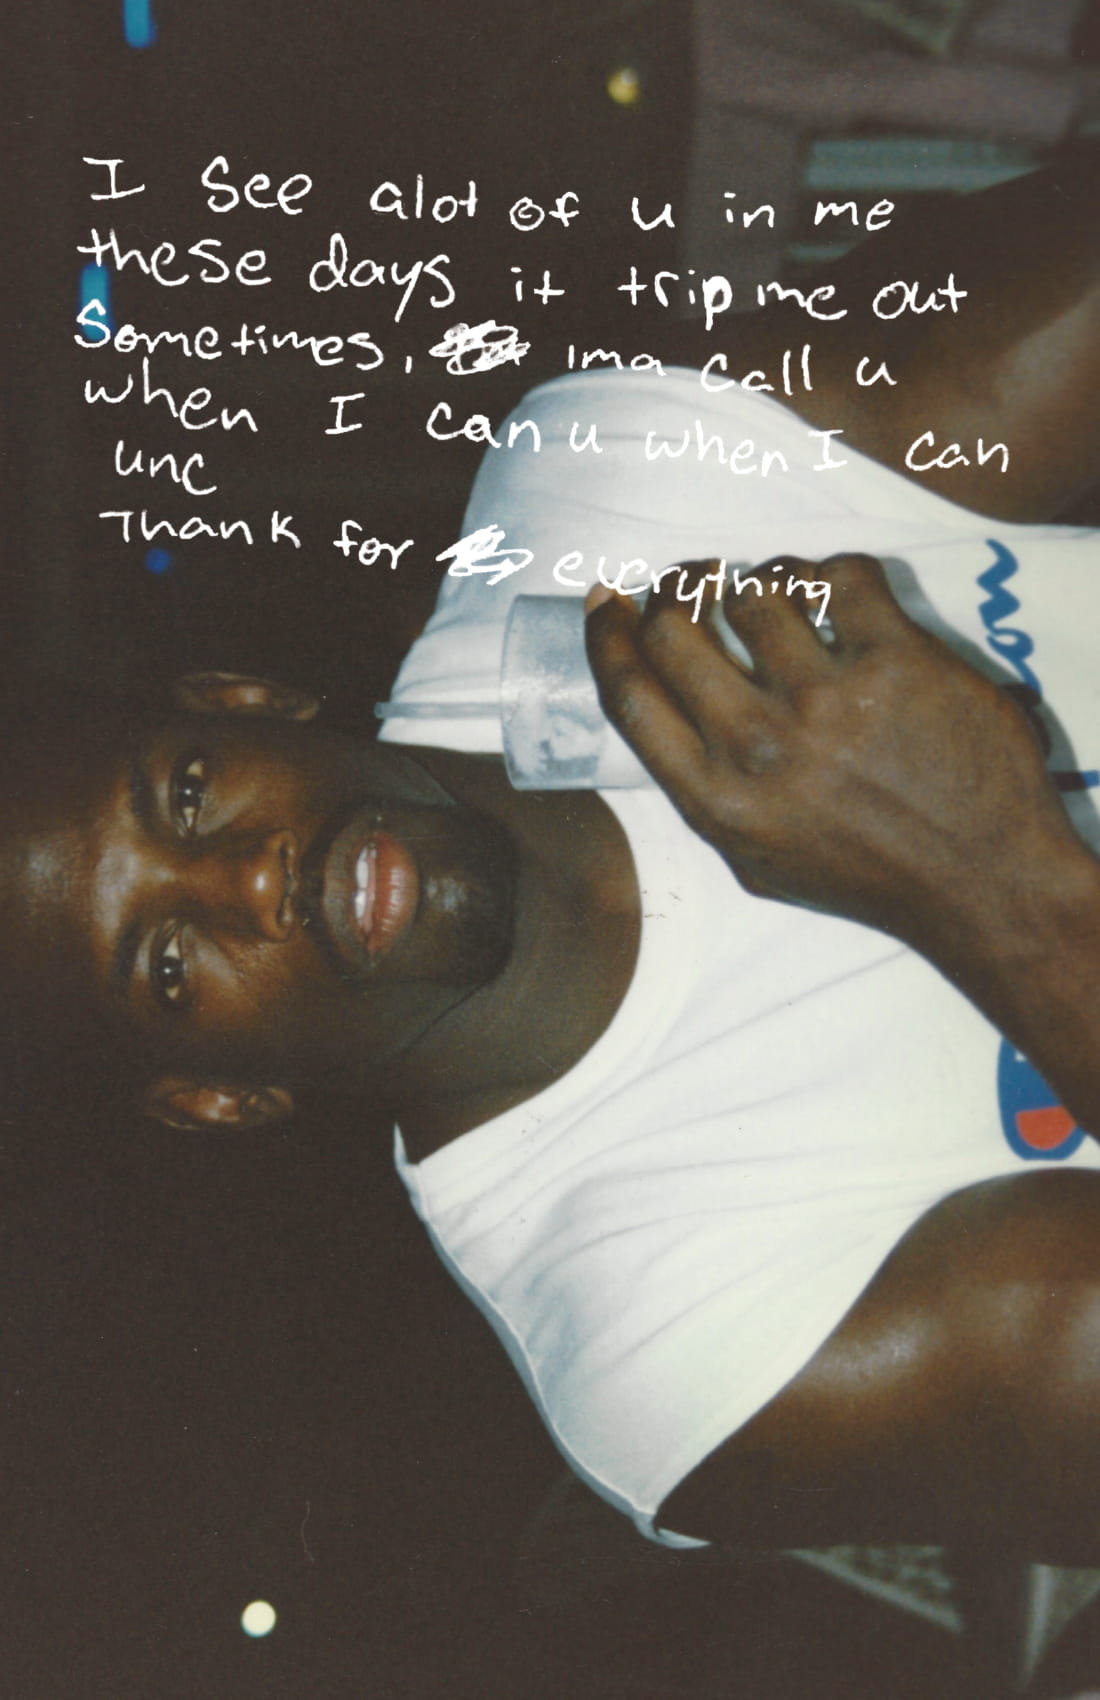 I see alot of u in me
these days it trip me out
sometimes, ima call u
when I can u when I can
unc
Thank for everything